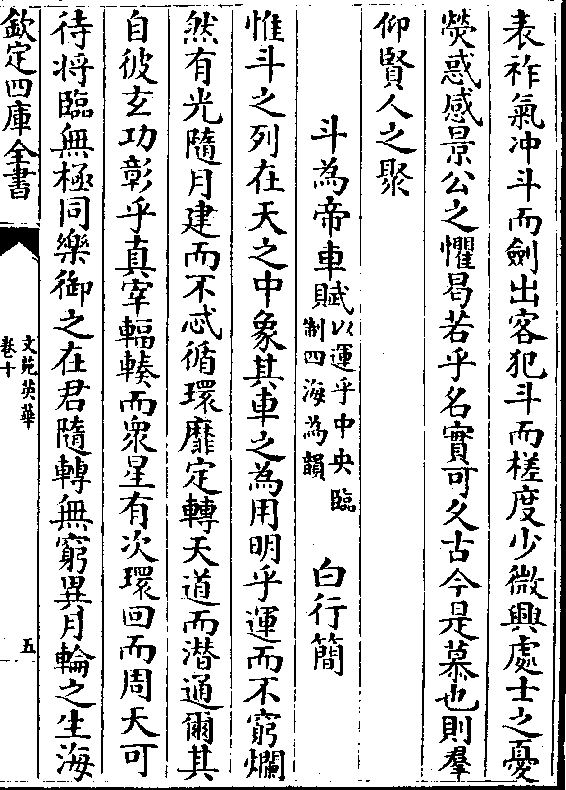 表祚氣冲斗而劍出客犯斗而槎度少微興處士之憂
熒惑感景公之懼曷若乎名實可久古今是慕也則羣
仰賢人之聚
斗為帝車賦以運乎中央臨制四海為韻 白行簡
惟斗之列在天之中象其車之為用明乎運而不窮爛
然有光隨月建而不忒循環靡定轉天道而潜通爾其
自彼玄功彰乎真宰輻輳而衆星有次環回而周天可
待将臨無極同樂御之在君隨轉無窮異月輪之生海
欽定四庫全書
文苑英華
卷十
五